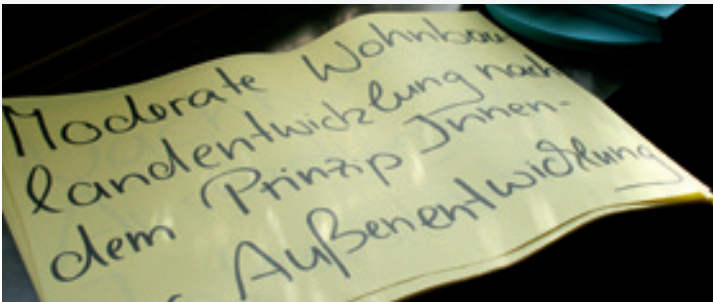 Moderate Wohnbau
landentwicklung nach
dem Prinzip Innen-
Außenentwicklung